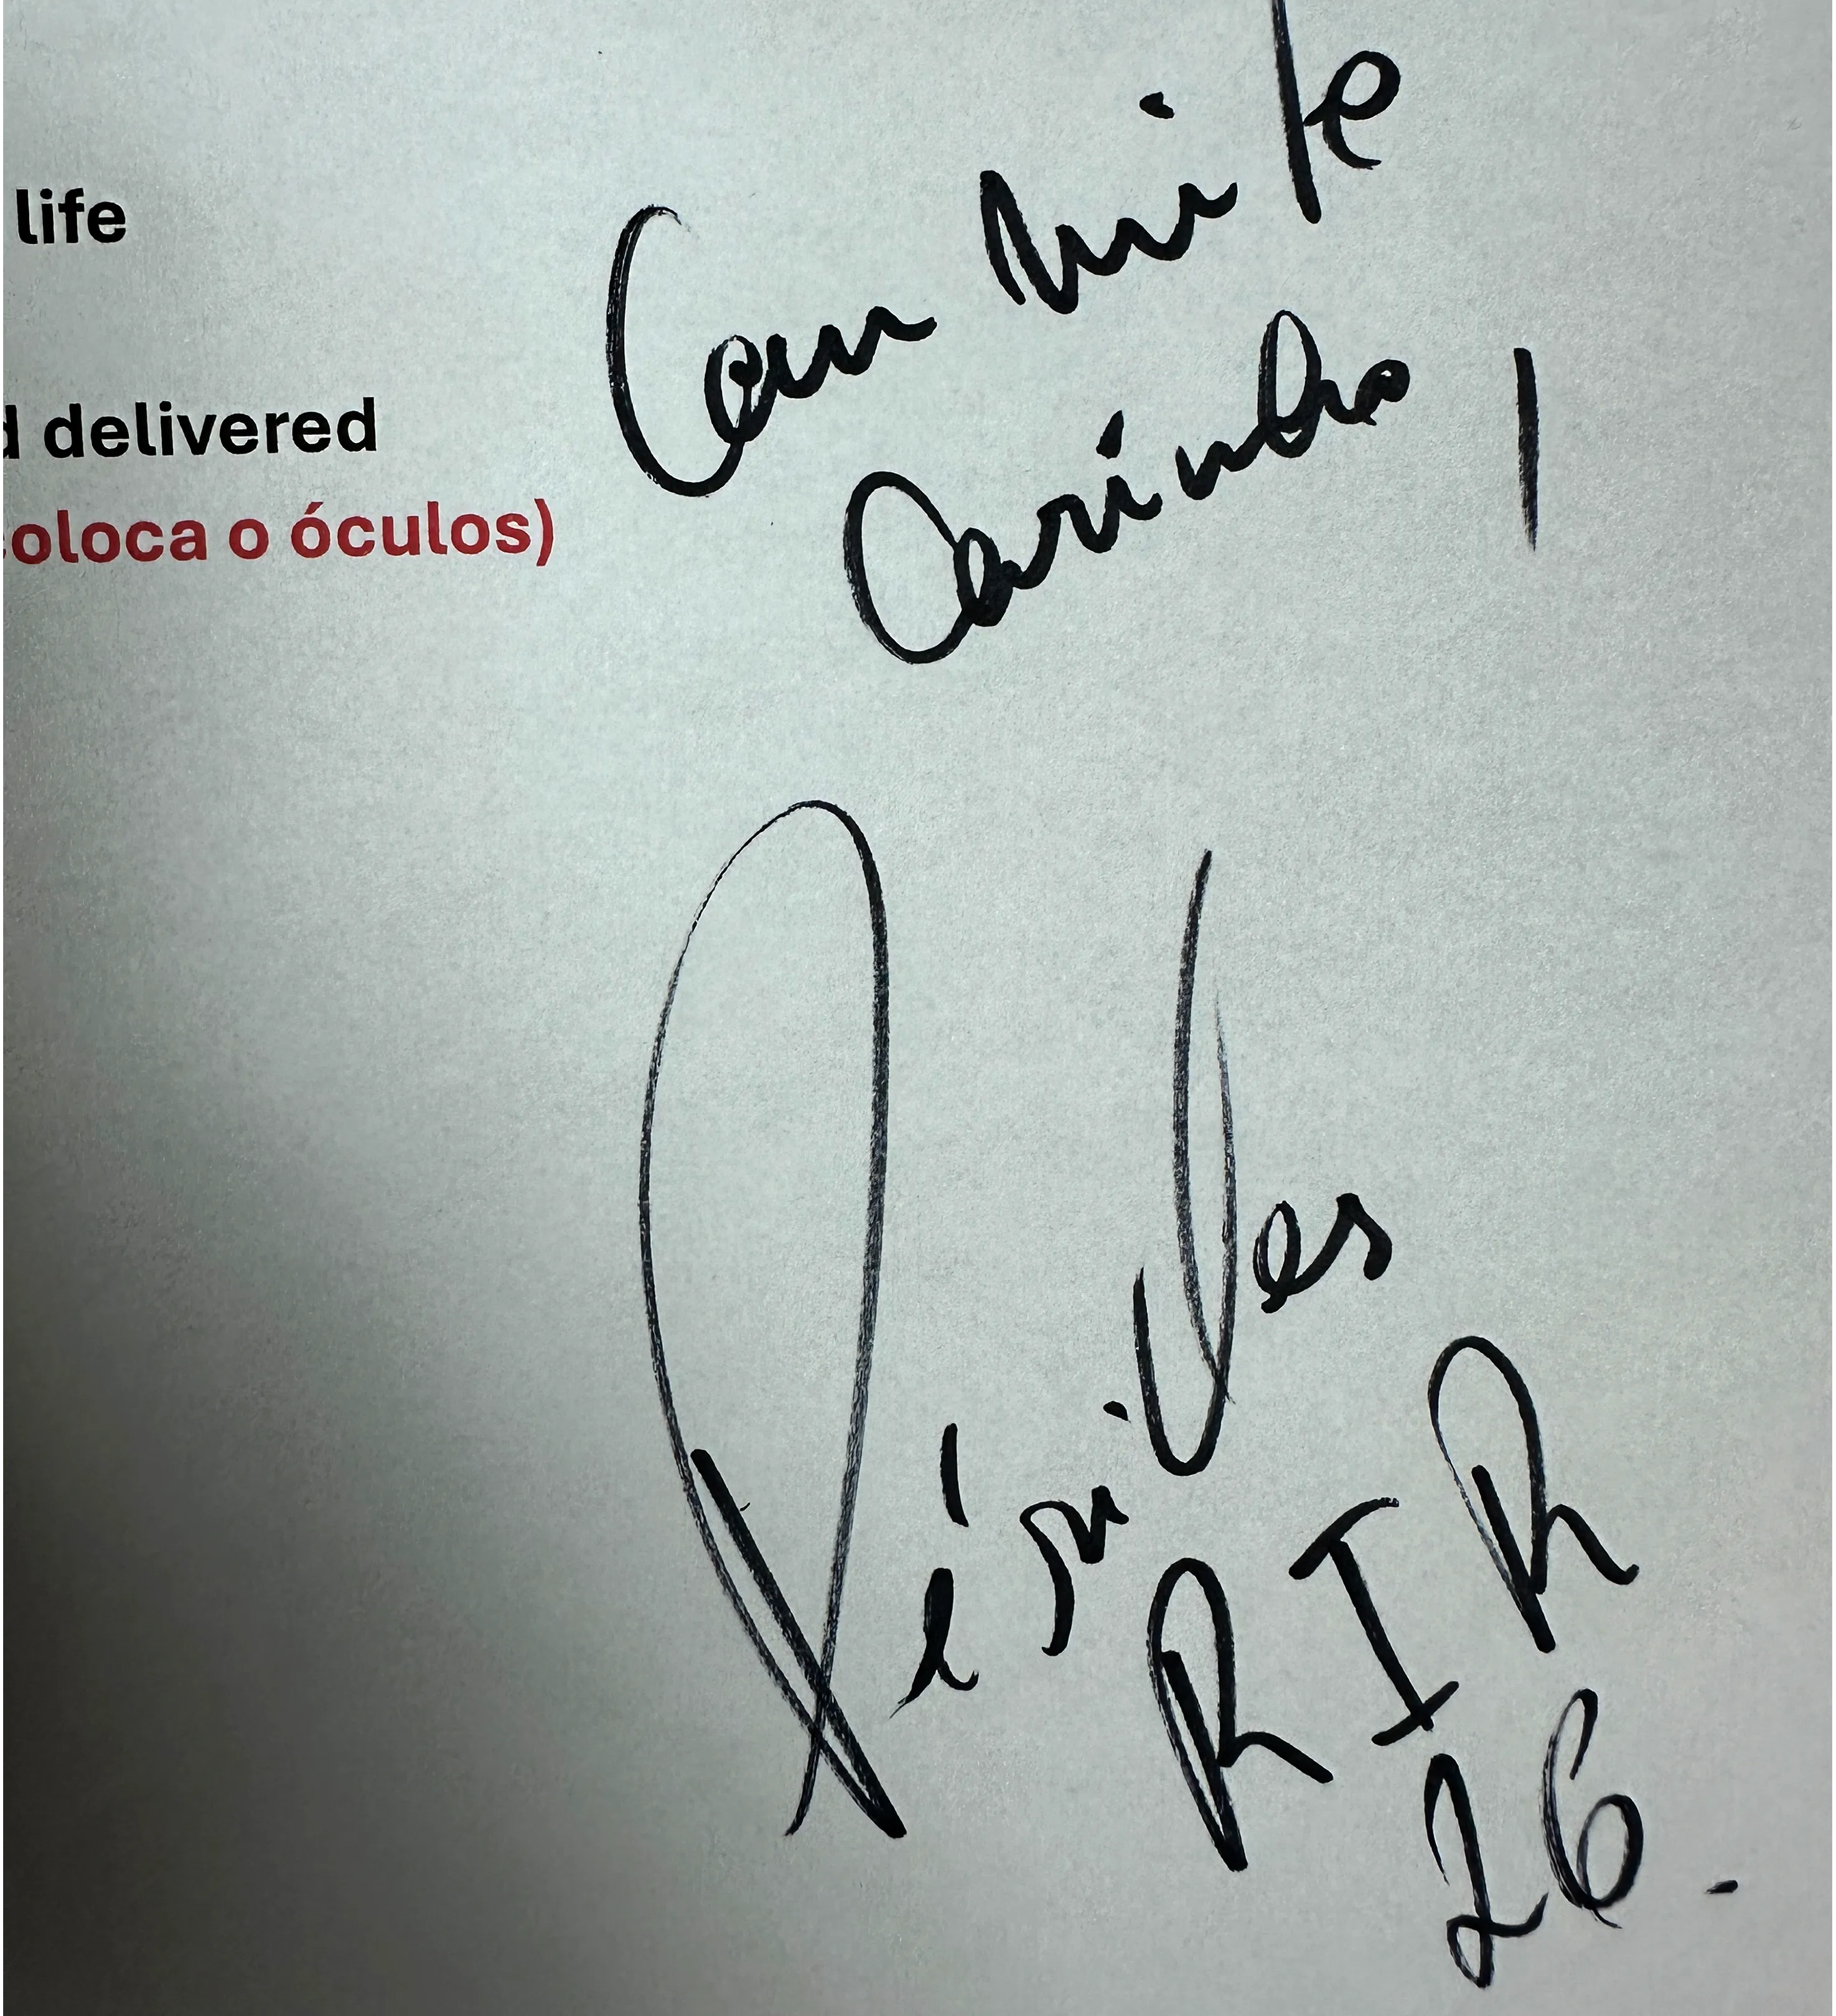 life
d delivered
coloca o óculos)
Com muito
Carinho!
Péricles
RIR
26.